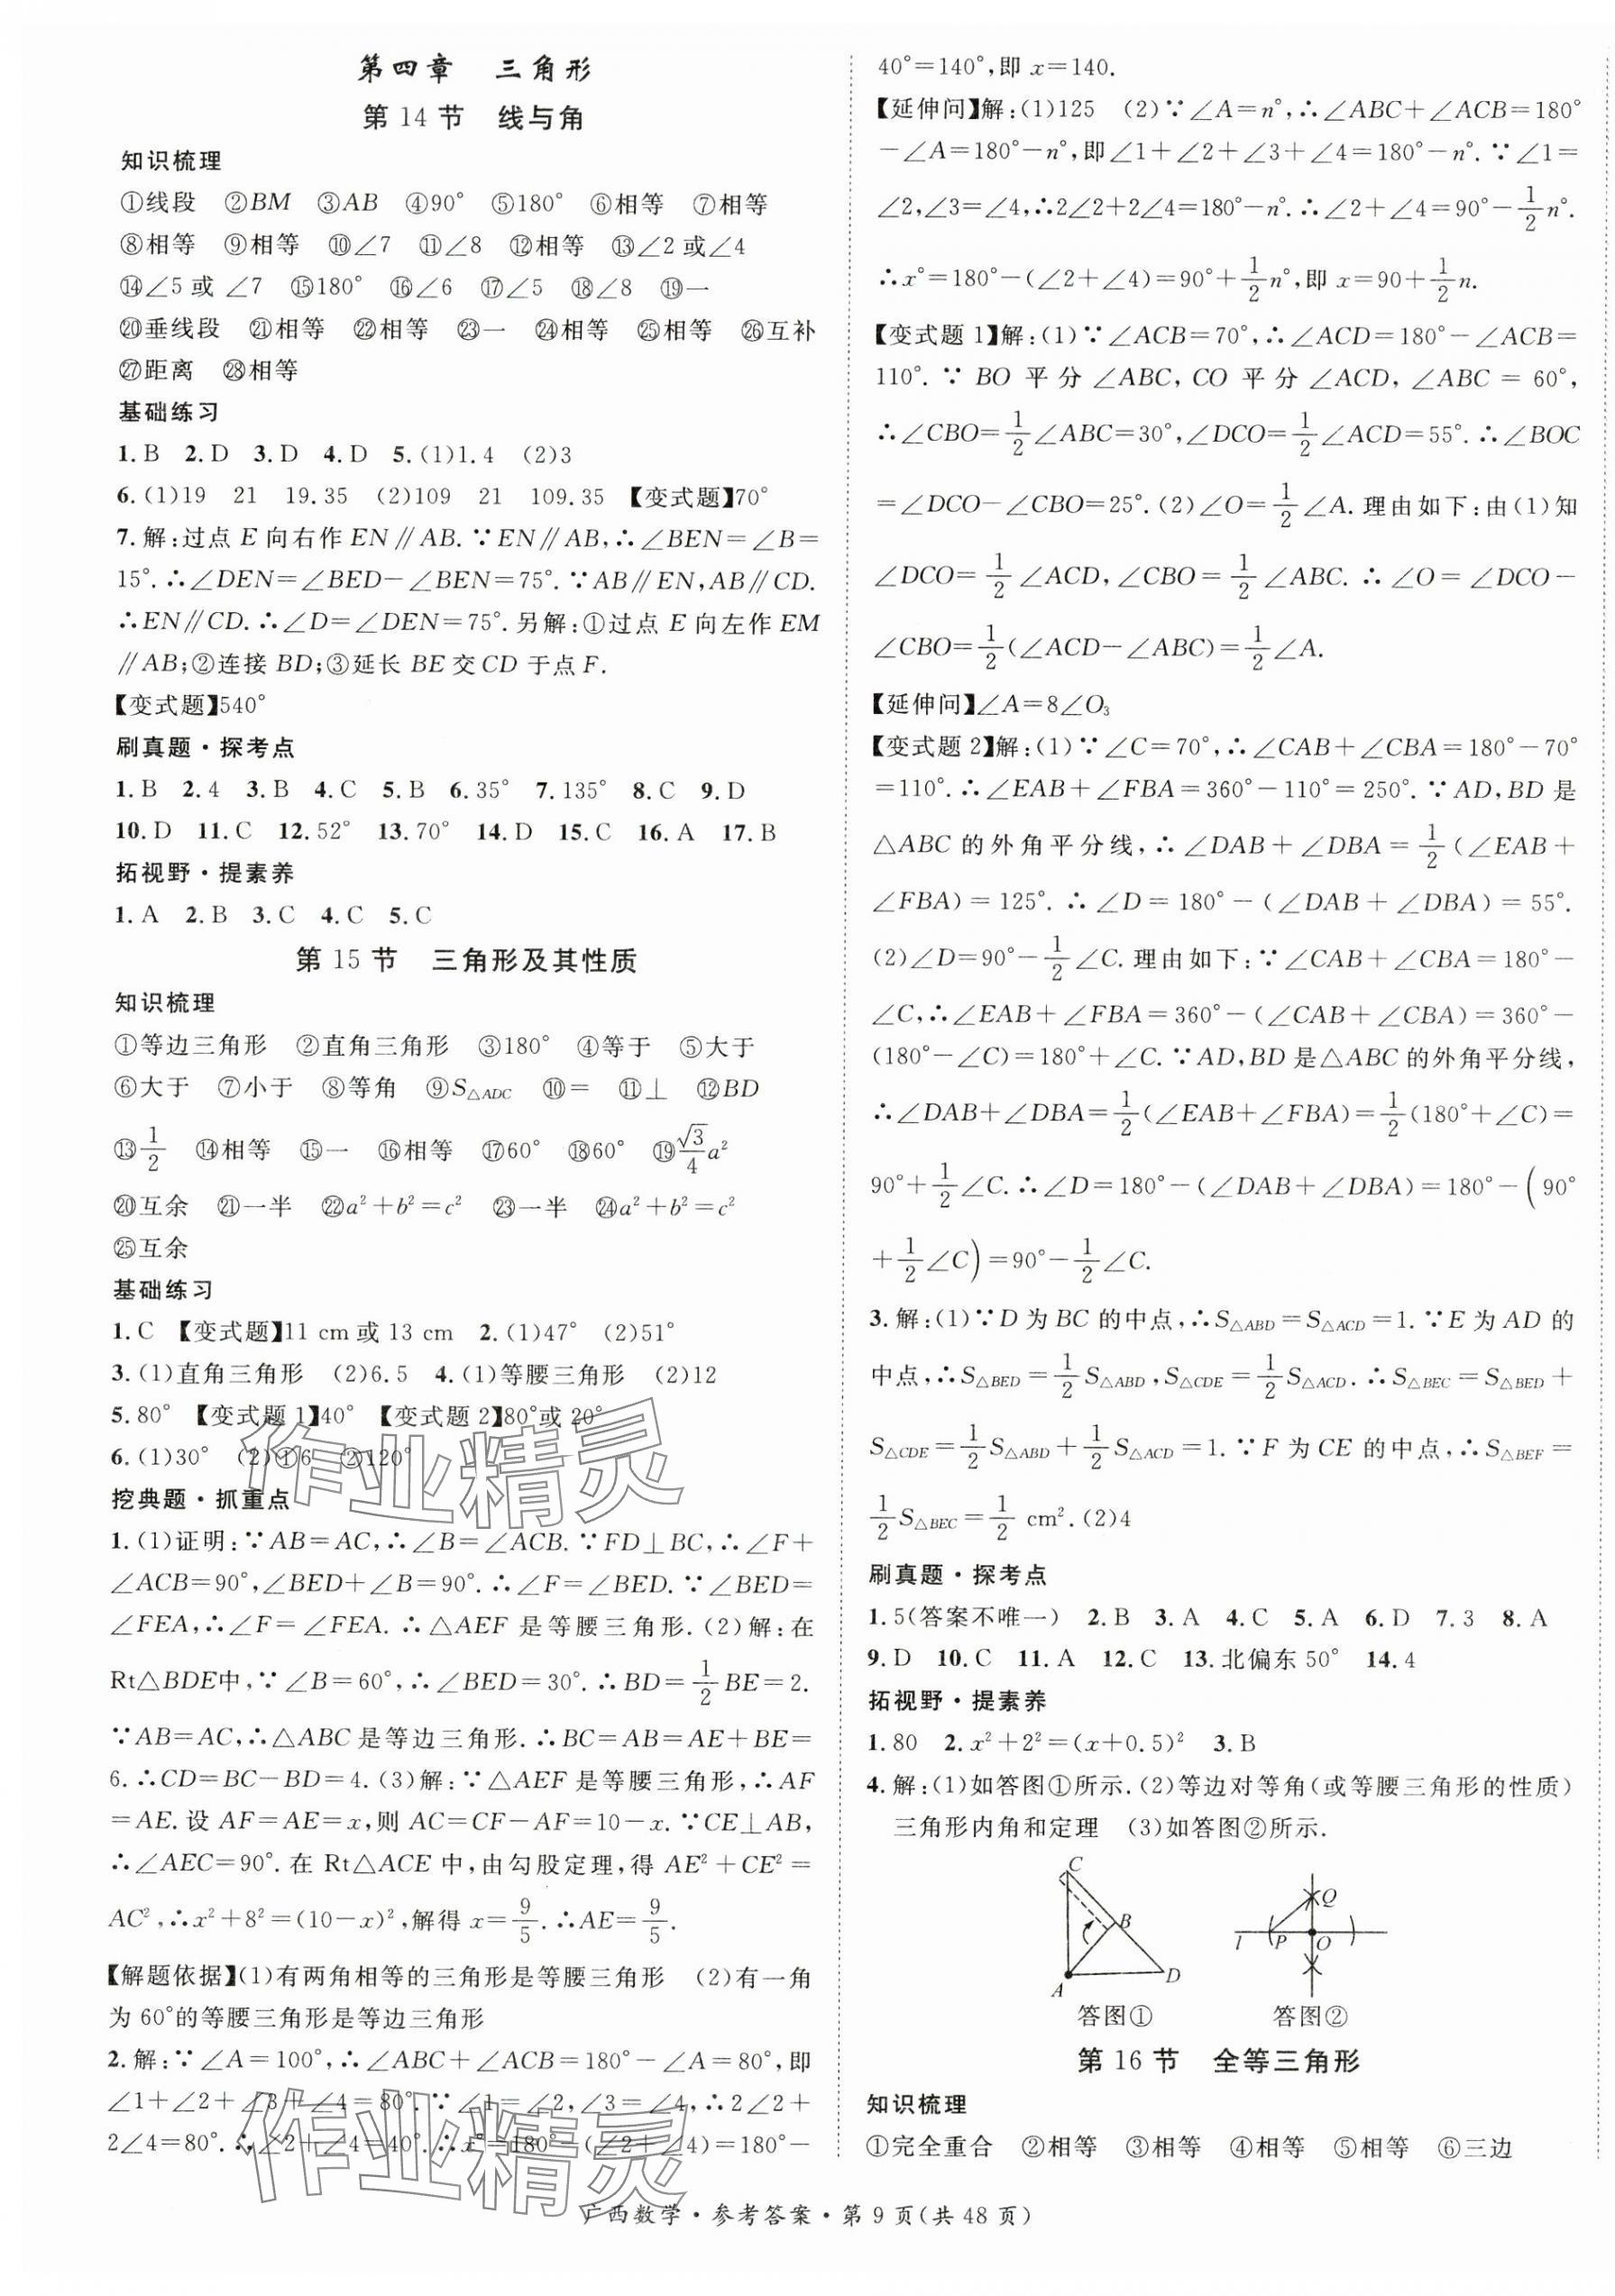 第四章 三角形
第14节 线与角
知识梳理
①线段 ②BM ③AB ④90° ⑤180° ⑥相等 ⑦相等
⑧相等 ⑨相等 ⑩∠7 ⑪∠8 ⑫相等 ⑬∠2或∠4
⑭∠5或∠7 ⑮180° ⑯∠6 ⑰∠5 ⑱∠8 ⑲一
⑳垂线段 ㉑相等 ㉒相等 ㉓一 ㉔相等 ㉕相等 ㉖互补
㉗距离 ㉘相等
基础练习
1.B 2.D 3.D 4.D 5.(1)1.4 (2)3
6.(1)19 21 19.35 (2)109 21 109.35 【变式题】70°
7.解:过点E向右作EN∥AB.∵EN∥AB,∴∠BEN=∠B=
15°.∴∠DEN=∠BED-∠BEN=75°.∵AB∥EN,AB∥CD.
∴EN∥CD.∴∠D=∠DEN=75°.另解:①过点E向左作EM
∥AB;②连接BD;③延长BE交CD于点F.
【变式题】540°
刷真题·探考点
1.B 2.4 3.B 4.C 5.B 6.35° 7.135° 8.C 9.D
10.D 11.C 12.52° 13.70° 14.D 15.C 16.A 17.B
拓视野·提素养
1.A 2.B 3.C 4.C 5.C
第15节 三角形及其性质
知识梳理
①等边三角形 ②直角三角形 ③180° ④等于 ⑤大于
⑥大于 ⑦小于 ⑧等角 ⑨S△ADC ⑩= ⑪⊥ ⑫BD
⑬1/2 ⑭相等 ⑮一 ⑯相等 ⑰60° ⑱60° ⑲√3/4a²
⑳互余 ㉑一半 ㉒a²+b²=c² ㉓一半 ㉔a²+b²=c²
㉕互余
基础练习
1.C 【变式题】11 cm或13 cm 2.(1)47° (2)51°
3.(1)直角三角形 (2)6.5 4.(1)等腰三角形 (2)12
5.80° 【变式题1】40° 【变式题2】80°或20°
6.(1)30° (2)①6 ②120°
挖典题·抓重点
1.(1)证明:∵AB=AC,∴∠B=∠ACB.∵FD⊥BC,∴∠F+
∠ACB=90°,∠BED+∠B=90°.∴∠F=∠BED.∵∠BED=
∠FEA,∴∠F=∠FEA.∴△AEF是等腰三角形.(2)解:在
Rt△BDE中,∵∠B=60°,∴∠BED=30°.∴BD=1/2BE=2.
∵AB=AC,∴△ABC是等边三角形.∴BC=AB=AE+BE=
6.∴CD=BC-BD=4.(3)解:∵△AEF是等腰三角形,∴AF
=AE.设AF=AE=x,则AC=CF-AF=10-x.∵CE⊥AB,
∴∠AEC=90°.在Rt△ACE中,由勾股定理,得AE²+CE²=
AC²,∴x²+8²=(10-x)²,解得x=9/5.∴AE=9/5.
【解题依据】(1)有两角相等的三角形是等腰三角形 (2)有一角
为60°的等腰三角形是等边三角形
2.解:∵∠A=100°,∴∠ABC+∠ACB=180°-∠A=80°,即
∠1+∠2+∠3+∠4=80°.∵∠1=∠2,∠3=∠4,∴2∠2+
2∠4=80°.∴∠2+∠4=40°.∴x°=180°-(∠2+∠4)=180°-
40°=140°,即x=140.
【延伸问】解:(1)125 (2)∵∠A=n°,∴∠ABC+∠ACB=180°
-∠A=180°-n°,即∠1+∠2+∠3+∠4=180°-n°.∵∠1=
∠2,∠3=∠4,∴2∠2+2∠4=180°-n°.∴∠2+∠4=90°-1/2n°.
∴x°=180°-(∠2+∠4)=90°+1/2n°,即x=90+1/2n.
【变式题1】解:(1)∵∠ACB=70°,∴∠ACD=180°-∠ACB=
110°.∵BO平分∠ABC,CO平分∠ACD,∠ABC=60°,
∴∠CBO=1/2∠ABC=30°,∠DCO=1/2∠ACD=55°.∴∠BOC
=∠DCO-∠CBO=25°.(2)∠O=1/2∠A.理由如下:由(1)知
∠DCO=1/2∠ACD,∠CBO=1/2∠ABC.∴∠O=∠DCO-
∠CBO=1/2(∠ACD-∠ABC)=1/2∠A.
【延伸问】∠A=8∠O₃
【变式题2】解:(1)∵∠C=70°,∴∠CAB+∠CBA=180°-70°
=110°.∴∠EAB+∠FBA=360°-110°=250°.∵AD,BD是
△ABC的外角平分线,∴∠DAB+∠DBA=1/2(∠EAB+
∠FBA)=125°.∴∠D=180°-(∠DAB+∠DBA)=55°.
(2)∠D=90°-1/2∠C.理由如下:∵∠CAB+∠CBA=180°-
∠C,∴∠EAB+∠FBA=360°-(∠CAB+∠CBA)=360°-
(180°-∠C)=180°+∠C.∵AD,BD是△ABC的外角平分线,
∴∠DAB+∠DBA=1/2(∠EAB+∠FBA)=1/2(180°+∠C)=
90°+1/2∠C.∴∠D=180°-(∠DAB+∠DBA)=180°-(90°
+1/2∠C)=90°-1/2∠C.
3.解:(1)∵D为BC的中点,∴S△ABD=S△ACD=1.∵E为AD的
中点,∴S△BED=1/2S△ABD,S△CDE=1/2S△ACD.∴S△BEC=S△BED+
S△CDE=1/2S△ABD+1/2S△ACD=1.∵F为CE的中点,∴S△BEF=
1/2S△BEC=1/2 cm².(2)4
刷真题·探考点
1.5(答案不唯一) 2.B 3.A 4.C 5.A 6.D 7.3 8.A
9.D 10.C 11.A 12.C 13.北偏东50° 14.4
拓视野·提素养
1.80 2.x²+2²=(x+0.5)² 3.B
4.解:(1)如答图①所示.(2)等边对等角(或等腰三角形的性质)
三角形内角和定理 (3)如答图②所示.
C
B
A
D
Q
l
P
O
答图①
答图②
第16节 全等三角形
知识梳理
①完全重合 ②相等 ③相等 ④相等 ⑤相等 ⑥三边
广西数学·参考答案·第9页(共48页)
作业精灵
作业精灵